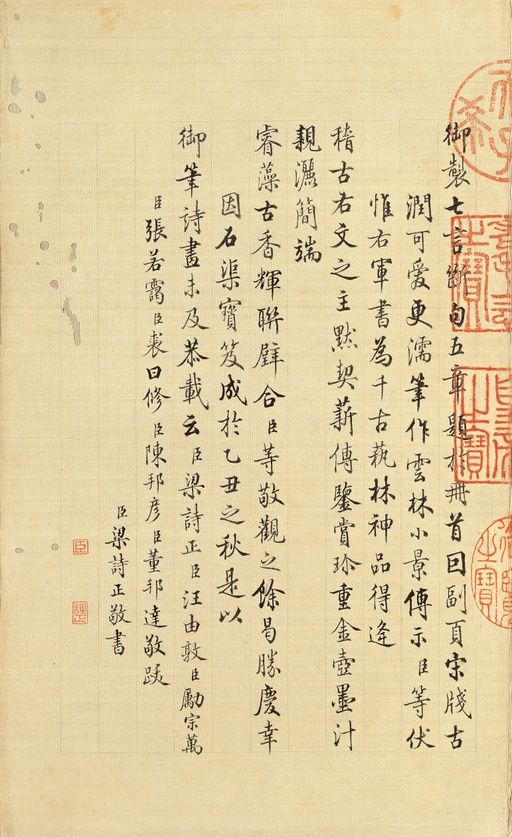 御製七言斷句五章題於冊首回副頁宋牋古
潤可愛更濡筆作雲林小景傳示臣等伏
惟右軍書為千古萟林神品得逢
稽古右文之主默契薪傳鑒賞珍重金壺墨汁
親灑簡端
睿藻古香輝聯璧合臣等敬觀之餘曷勝慶幸
因石渠寶笈成於乙丑之秋是以
御筆詩畫未及恭載云臣梁詩正臣汪由敦臣勵宗萬
臣張若靄臣裘曰修臣陳邦彥臣董邦達敬跋
臣梁詩正敬書
臣
之寶